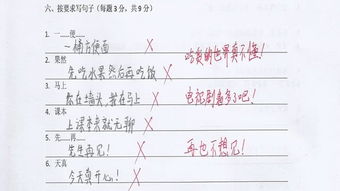 六、按要求写句子（每题 3 分，共 9 分）
1. 一……便……
一桶方便面
吃货的世界真不懂！
2. 果然
先吃水果然后再吃饭
3. 马上
你在墙头，我在马上
电视剧看多了吧！
4. 课本
上课本来就无聊
5. 先……再……
先生再见！
再也不想见！
6. 天真
今天真开心！